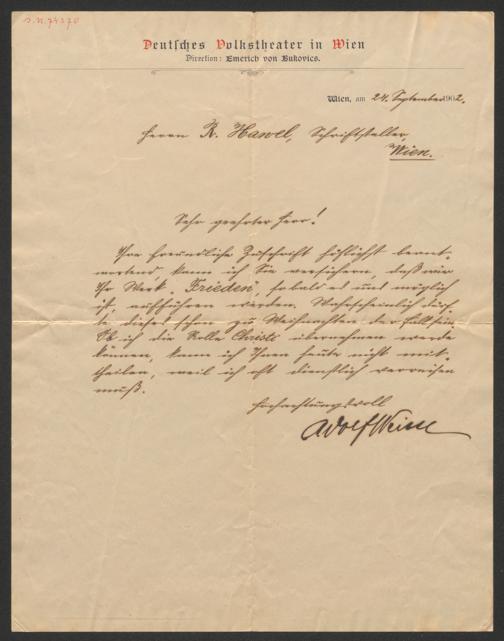 I.N. 74370
Deutsches Volkstheater in Wien
Direction: Emerich von Bukovics.
Wien, am 24. September 1902.
Herrn R. Hawel, Schriftsteller,
Wien.
Sehr geehrter Herr!
Ihre freundliche Zuschrift höflichst beant-
wortend, kann ich Sie versichern, daß wir
Ihr Werk „Frieden“, sobald es uns möglich
ist, aufführen werden. Wahrscheinlich dürf-
te dieses schon zu Weihnachten der Fall sein.
Ob ich die Rolle Christi übernehmen werde
können, kann ich Ihnen heute nicht mit-
theilen, weil ich oft dienstlich verreisen
muß.
Hochachtungsvoll
Adolf Weisse